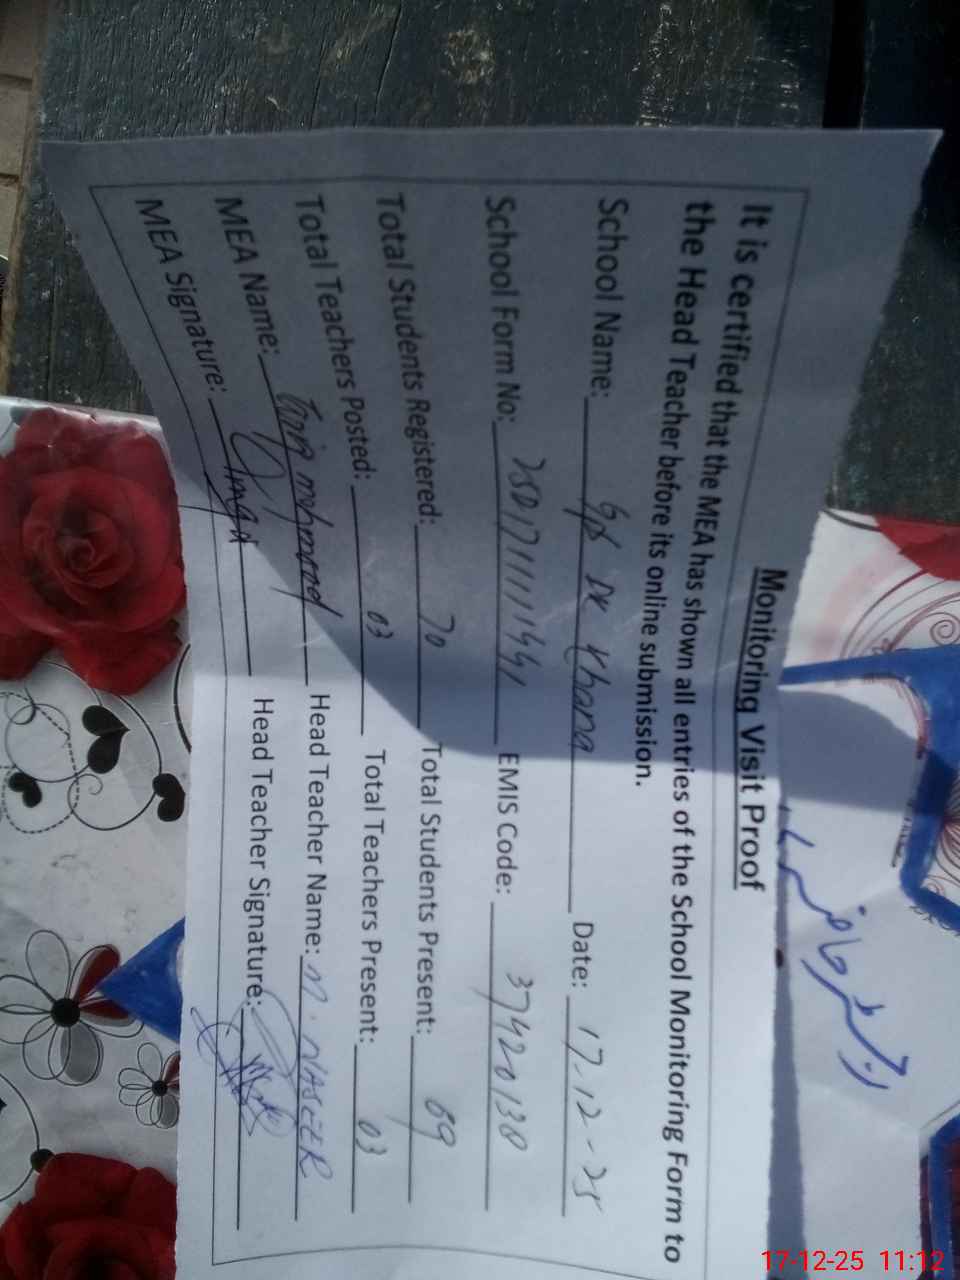 Monitoring Visit Proof
It is certified that the MEA has shown all entries of the School Monitoring Form to
the Head Teacher before its online submission.
School Name: GPS DK Khana Date: 17-12-25
School Form No: EMIS Code: 37420130
Total Students Registered: 70 Total Students Present: 69
Total Teachers Posted: 03 Total Teachers Present: 03
MEA Name: Tariq mehmood Head Teacher Name: M. NASEER
MEA Signature: Head Teacher Signature:
17-12-25 11:12